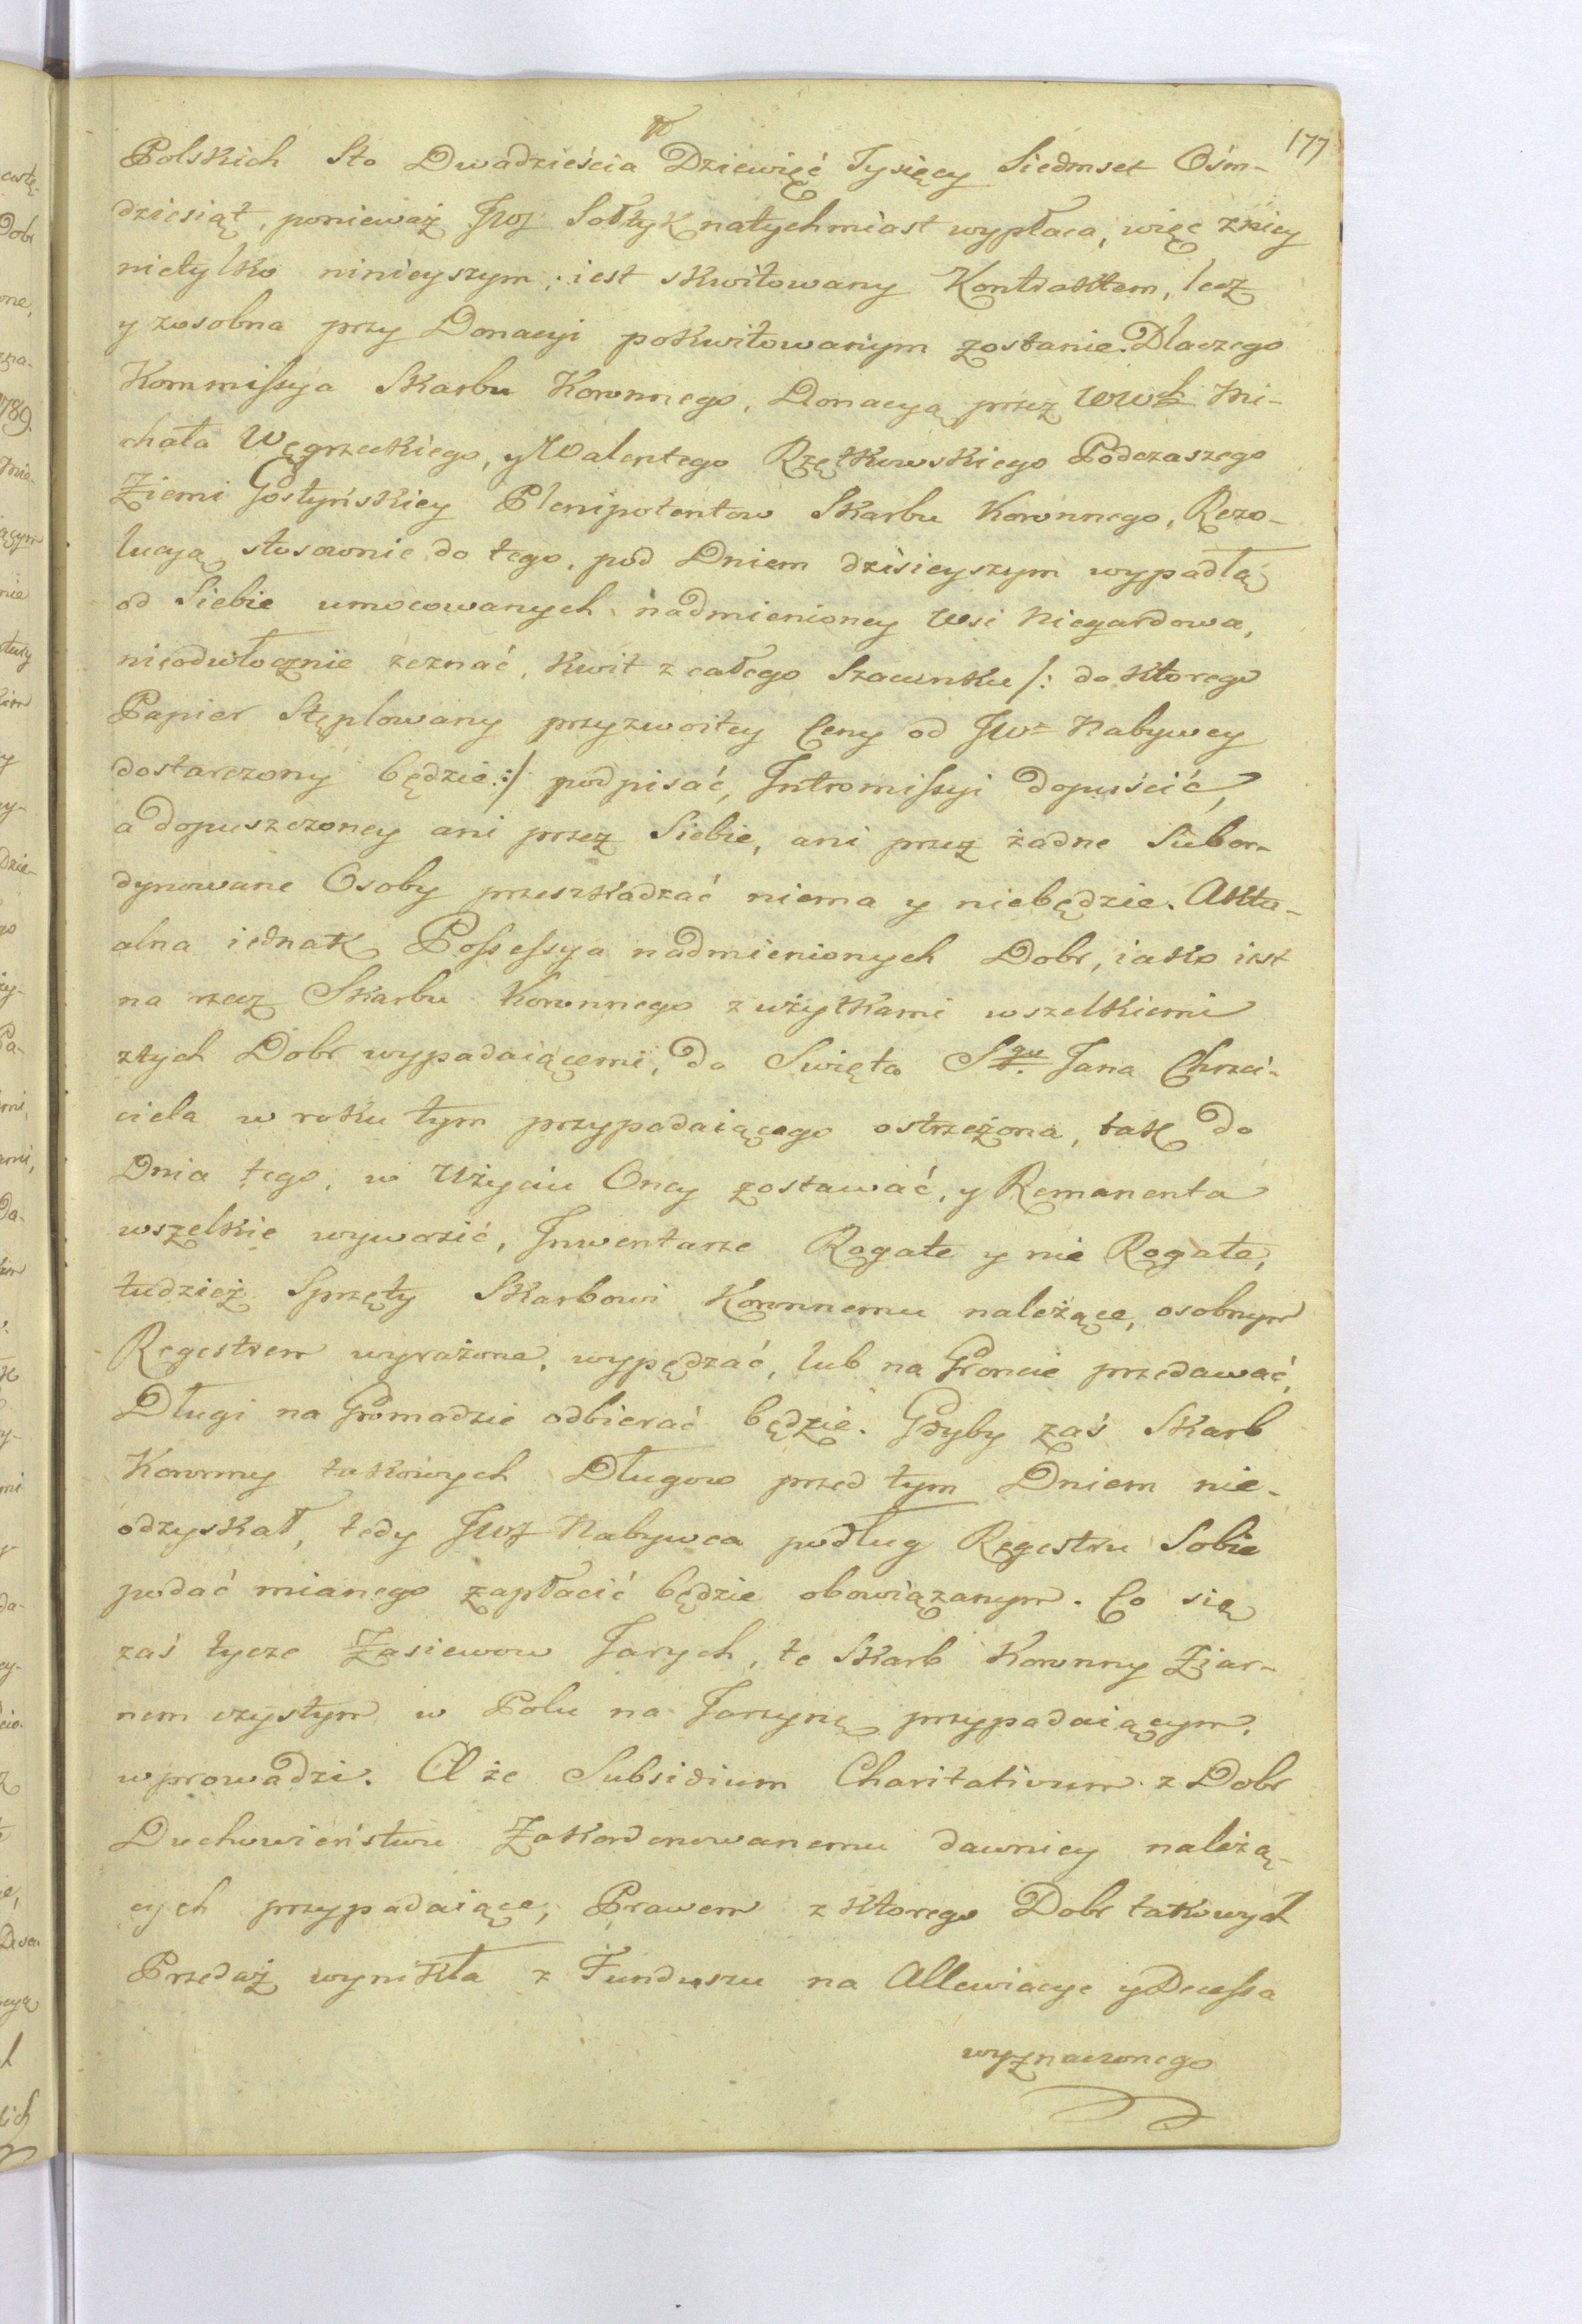 177
Polskich Sto Dwadzieścia Dziewięć Tysięcy Siedmset Ośm-
dziesiąt, ponieważ JWJ Sołtyk natychmiast wypłaca, więc zniey
nietylko ninieyszym iest skwitowany Kontraktem, lecz
y zosobna przy Donacyi pokwitowanym zostanie. Dlaczego
Kommissya Skarbu Koronnego, Donacyą przez WWch Mi-
chała Węgrzeckiego, y Walentego Rzętkowskiego Podczaszego
Ziemi Gostyńskiey Plenipotentow Skarbu Koronnego, Rezo-
lucyą stosownie do tego, pod Dniem dzisieyszym wypadłą
od Siebie umocowanych nadmienioney Wsi Niegardowa,
nieodwłocznie zeznać, Kwit z całego Szacunku /: do ktorego
Papier Stęplowany przyzwoitey Ceny od JWo Nabywcy
dostarczony będzie :/ podpisać, Intromissyi dopuścić,
a dopuszczoney ani przez Siebie, ani przez żadne Subor-
dynowane Osoby przeszkadzać niema y niebędzie. Aktu-
alna iednak Possessya nadmienionych Dobr, iako iest
na rzecz Skarbu Koronnego z użytkami wszelkiemi
ztych Dobr wypadaiącemi, do Swięta Sgo Jana Chrzci-
ciela w roku tym przypadaiącego ostrzeżona, tak do
Dnia tego, w Użyciu Oney zostawać, y Remanenta
wszelkie wywozić, Inwentarze Rogate y nie Rogate,
tudzież Sprzęty Skarbowi Koronnemu należące, osobnym
Regestrem wyrażone, wypędzać, lub na Groncie przedawać,
Długi na Gromadzie odbierać będzie. Gdyby zaś Skarb
Koronny takowych Długow przed tym Dniem nie-
odzyskał, tedy JWJ Nabywca podług Regestru Sobie
podać mianego zapłacić będzie obowiązanym. Co się
zaś tycze Zasiewow Jarych, te Skarb Koronny Ziar-
nem czystym w Polu na Jarzynę przypadaiącym,
wprowadzi. A że Subsidium Charitativum z Dobr
Duchowieństwu Zakordonowanemu dawniey należą-
cych przypadaiące, Prawem z ktorego Dobr takowych
Przedaż wynikła z Funduszu na Allewiacye y Decessa
wyznaczonego